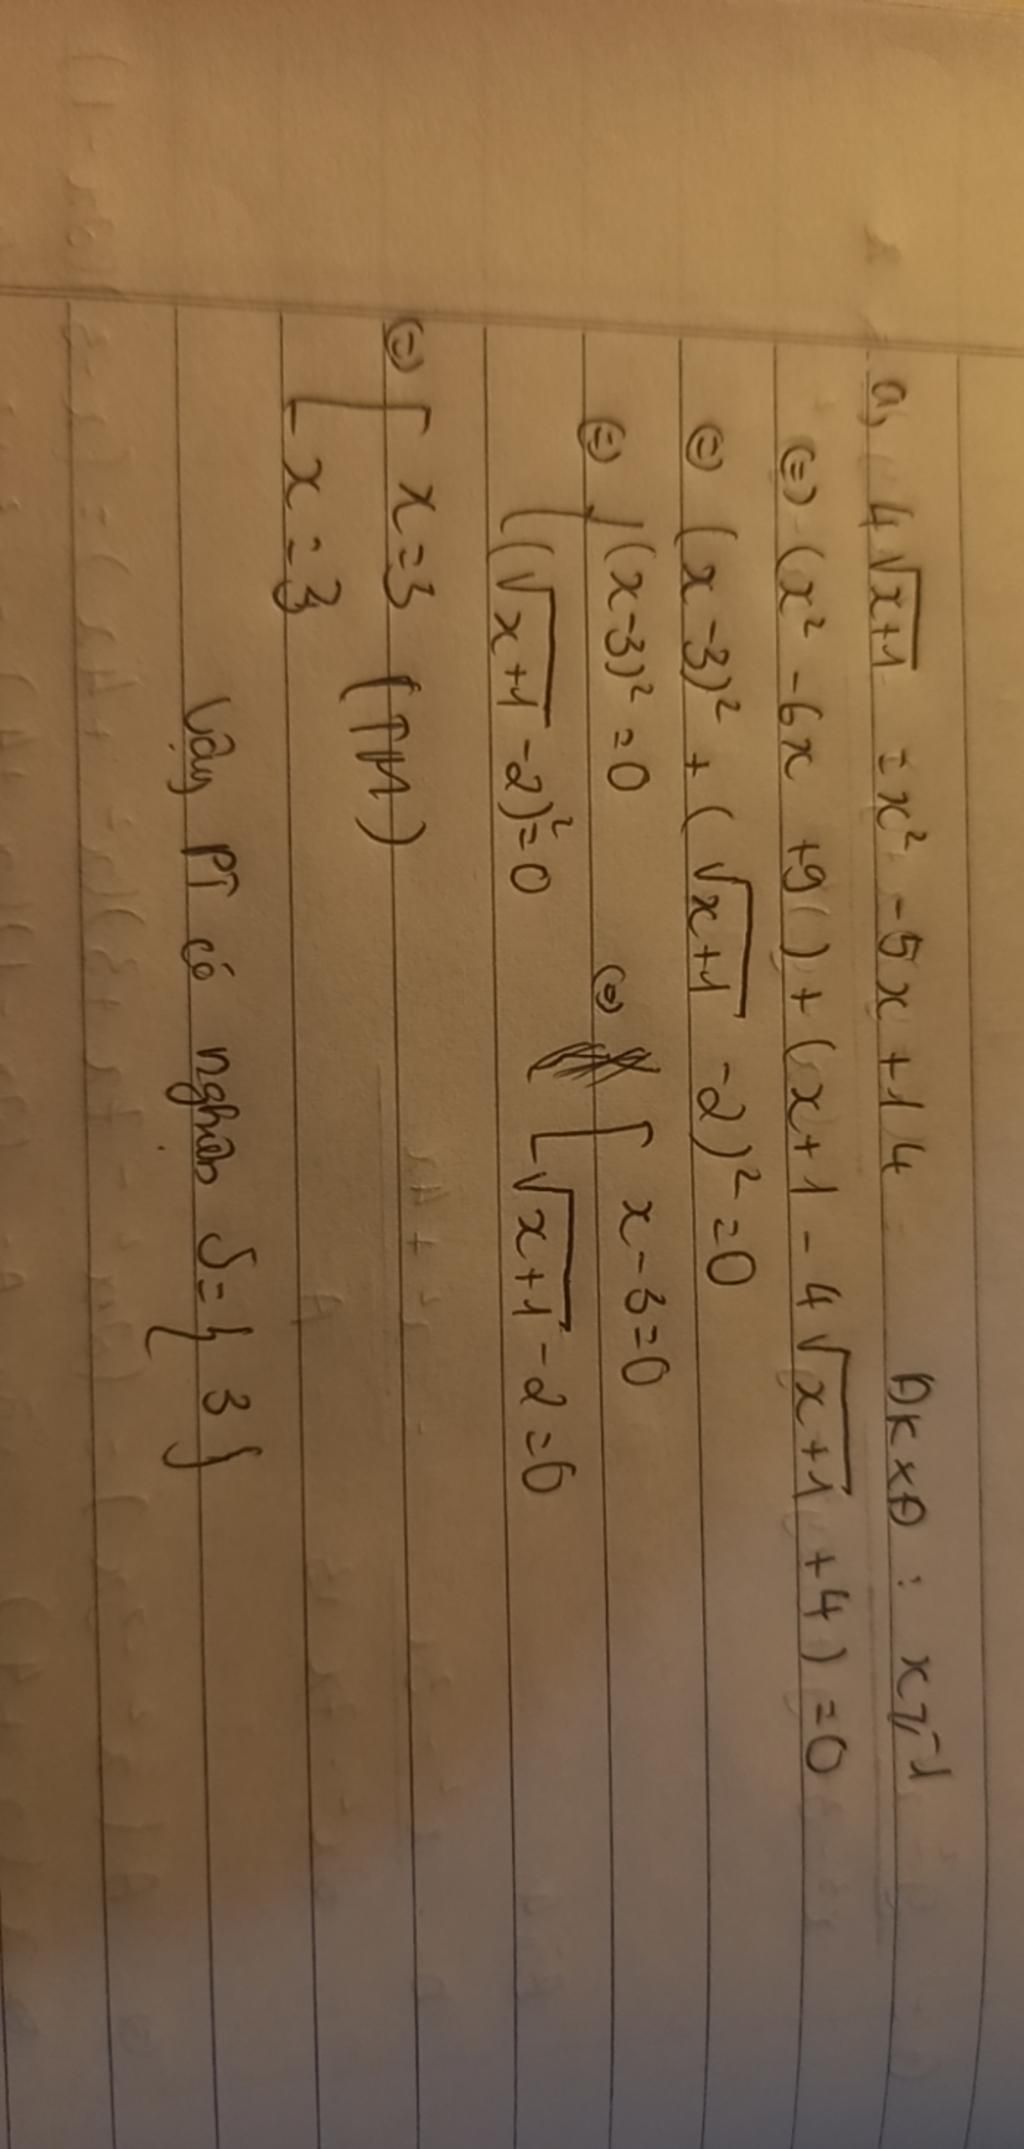 a, 4√(x+1) = x² - 5x + 14 ĐKXĐ : x ⩾ -1
(=) (x² - 6x + 9) + (x + 1 - 4√(x+1) + 4) = 0
(=) (x - 3)² + (√(x+1) - 2)² = 0
(=) [ (x-3)² = 0 (=) [ x - 3 = 0
(√(x+1) - 2)² = 0 √(x+1) - 2 = 0
(=) [ x = 3 (TM)
x = 3
Vậy PT có nghiệm S = { 3 }